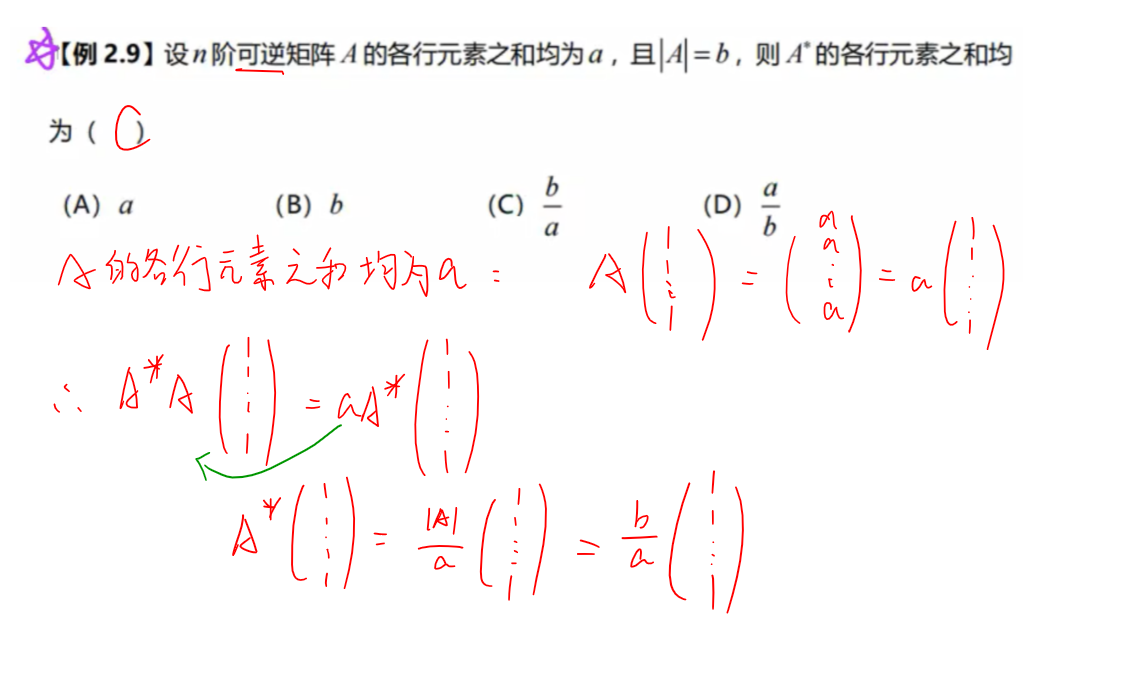 【例 2.9】设 n 阶可逆矩阵 A 的各行元素之和均为 a，且|A|=b，则 A* 的各行元素之和均
为（ C ）
(A) a (B) b (C) b/a (D) a/b
A的各行元素之和均为a： A(1 1 ⋮ 1) = (a a ⋮ a) = a(1 1 ⋮ 1)
∴ A*A(1 1 ⋮ 1) = aA*(1 1 ⋮ 1)
A*(1 1 ⋮ 1) = |A|/a (1 1 ⋮ 1) = b/a (1 1 ⋮ 1)